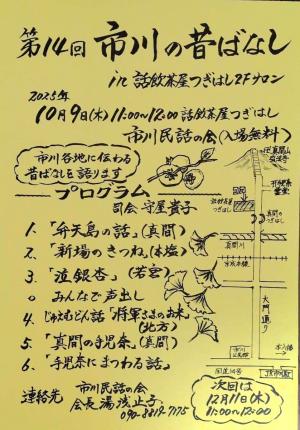 第14回 市川の昔ばなし
in 話飲茶屋つぎはし2Fサロン
2025年
10月9日(木) 11:00~12:00 話飲茶屋つぎはし
市川民話の会(入場無料)
市川各地に伝わる
昔ばなしを語ります
プログラム
司会 守屋貴子
1.「弁天島の話」(真間)
2.「新場のきつね」(本塩)
3.「泣銀杏」(若宮)
○ みんなで声出し
4. じゅえむどん話「将軍さまのお米」
(北方)
5.「真間の手児奈」(真間)
6.「手児奈にまつわる話」
連絡先 市川民話の会
会長 湯浅止子
090-8819-7175
真間山
弘法寺
手児奈
霊堂
真間の
つぎはし
真間川
京成本線
大門通り
市川
国道14号
JR市川駅
次回は
12月11日(木)
11:00~12:00